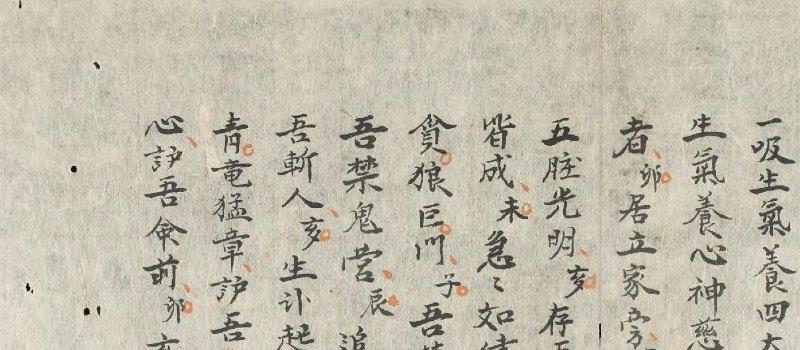 一吸生氣養四大
生氣養心神慈
者卯居立家
五脏光明亥存
皆成未急〻如
貪狼巨門子吾
吾禁鬼营辰追
吾斬人亥生
青竜猛章護吾
心護吾前卯